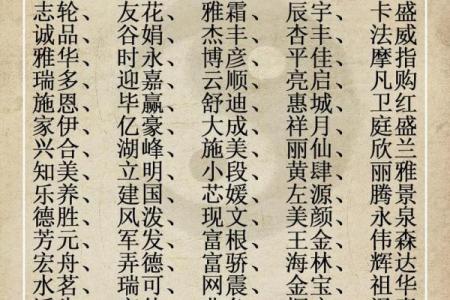 志轮、友花、雅霜、辰宇、卡盛
诚品、谷娟、杰丰、杏丰、法威
雅华、时永、博彦、平佳、摩指
瑞多、迎嘉、云顺、亮启、凡购
施恩、毕赢、舒迪、惠城、卫红
家伊、亿豪、大成、祥月、庭盛
兴合、湖峰、施美、丽仙、欣兰
知美、立明、小段、黄肆、丽雅
乐养、建国、芯媛、左源、腾景
德胜、风泼、现文、美颜、永泉
芳元、军发、富根、王金、伟森
宏舟、弄德、富骄、海林、辉达
水茗、瑞可、网震、金宝、祖华